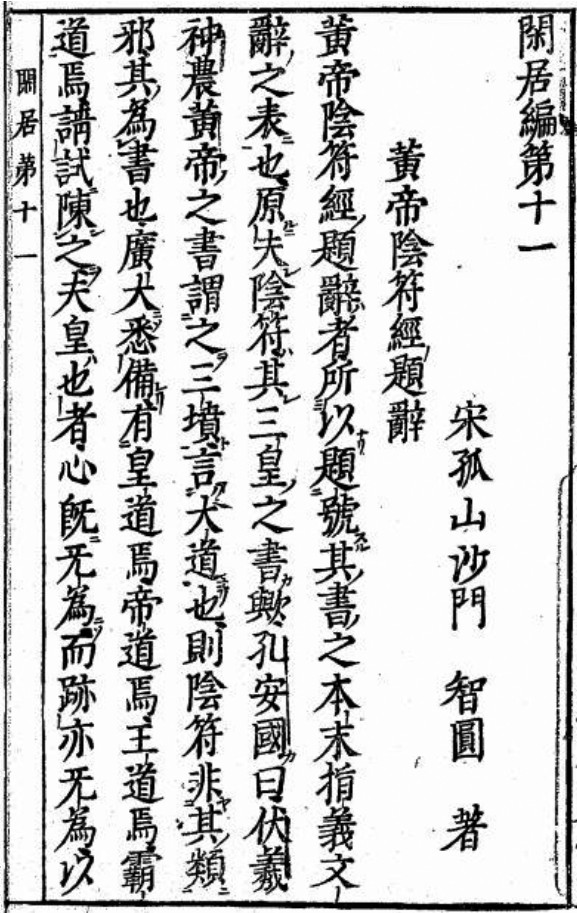 閑居編第十一
宋孤山沙門　智圓　著
黃帝陰符經題辭
黃帝陰符經題辭者所以題號其書之本末指義文
辭之表也原夫陰符其三皇之書歟孔安國曰伏羲
神農黃帝之書謂之三墳言大道也則陰符非其類
邪其為書也廣大悉備有皇道焉帝道焉王道焉霸
道焉請試陳之夫皇也者心既无為而跡亦无為以
閑居第十一